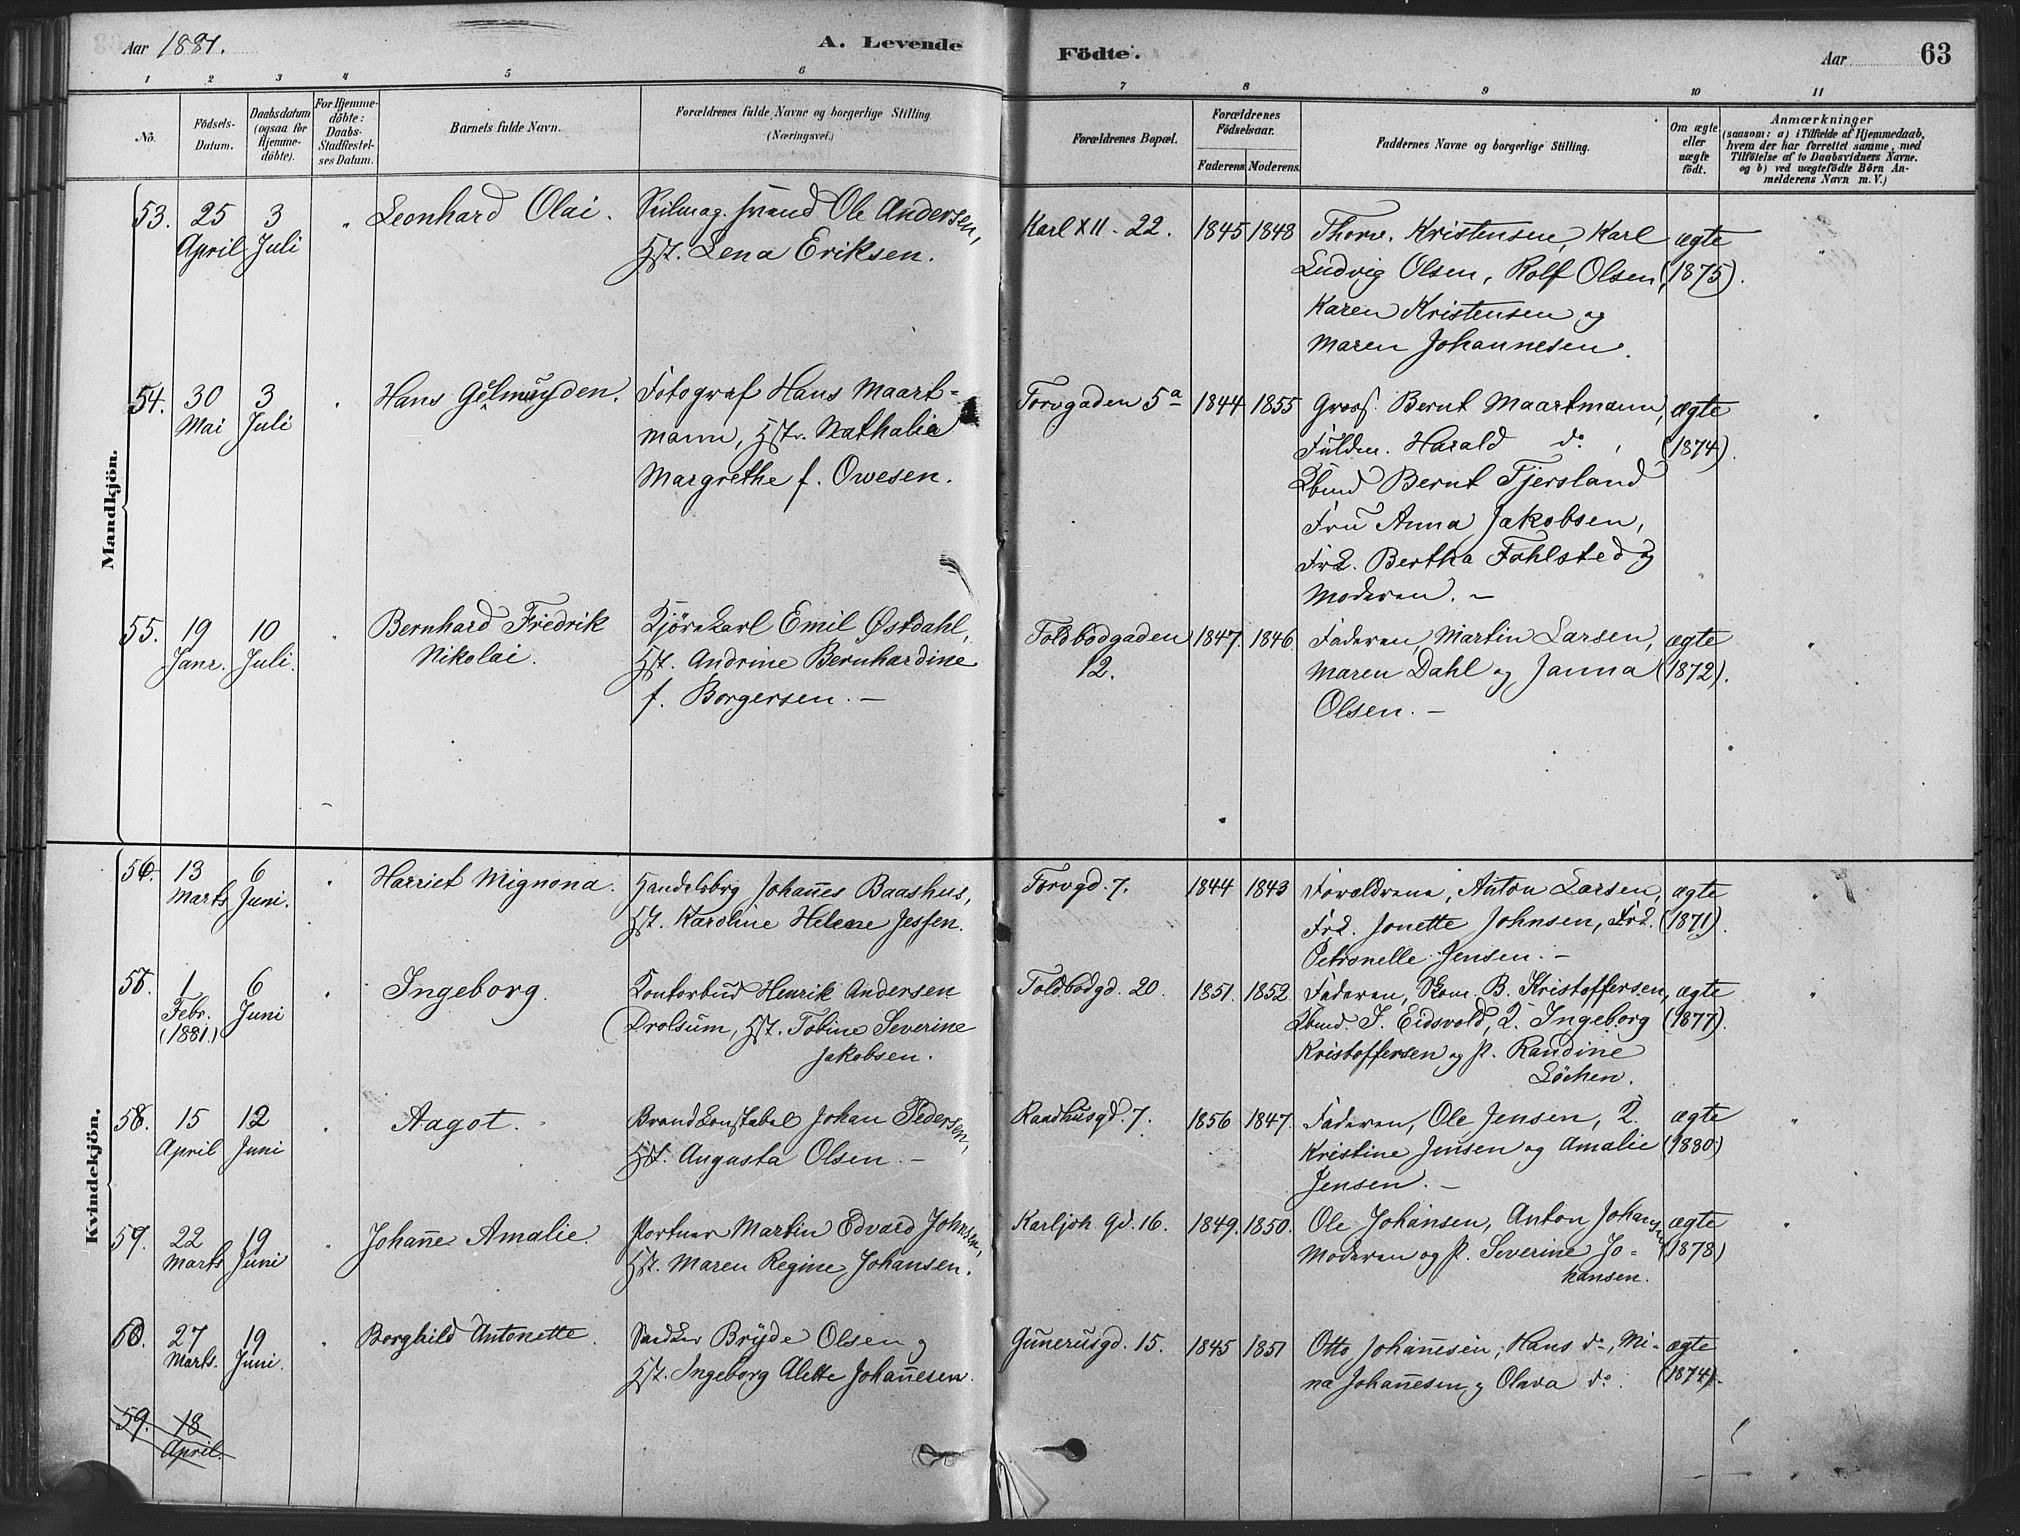 Aar 1881.
A. Levende
Födte.
Aar
63
1 2 3 4 5 6 7 8 9 10 11
No.
Födsels-
Datum.
Daabsdatum
(ogsaa for
Hjemme-
döbte).
For Hjemme-
döbte:
Daabs-
Stadfæstel-
ses Datum.
Barnets fulde Navn.
Forældrenes fulde Navne og borgerlige Stilling
(Næringsvei.)
Forældrenes Bopæl.
Forældrenes
Födselsaar.
Faderens Moderens
Faddernes Navne og borgerlige Stilling.
Om ægte
eller
uægte
födt.
Anmærkninger
(saasom: a) i Tilfælde af Hjemmedaab,
hvem der har forrettet samme, med
Tilföielse af to Daabsvidners Navne.
og b) ved uægtefödte Börn An-
melderens Navn m. V.)
Mandkjön.
53. 25 April 3 Juli " Leonhard Olai.
Ole Andersen,
Hst. Lena Eriksen.
Karl XII - 22. 1845 1848
Thorv. Kristensen, Karl
Ludvig Olsen, Rolf Olsen,
Karen Kristensen og
Maren Johannesen.
ægte
(1875).
54. 30 Mai 3 Juli " Hans Gelmuyden.
Fotograf Hans Maart-
mann, Hstr. Nathalie
Margrethe f. Owesen.
Torvgaden 5a 1844 1855
Gross. Bernt Maartmann,
Fuldm. Harald do,
Bernt Tjersland
Fru Anna Jakobsen,
Frk. Bertha Fahlsted og
Moderen. -
ægte
(1874).
55. 19 Janr. 10 Juli. " Bernhard Fredrik
Nikolai.
Kjörekarl Emil Østdahl,
Hst. Andrine Bernhardine
f. Borgersen. -
Toldbodgaden
12.
1847. 1846.
Faderen, Martin Larsen,
Maren Dahl og Janna
Olsen. -
ægte
(1872).
Kvindekjön.
56. 13 Marts 6 Juni. " Harriet Mignona.
Handelsbrg Johañes Baashus,
Hst. Karoline Helene Jessen.
Torvgd. 7. 1844 1843
Forældrene, Anton Larsen,
Frk. Jonette Johnsen, Frk.
Petronelle Jensen. -
ægte
(1871).
57. 1 Febr. (1881.) 6 Juni " Ingeborg.
Kontorbud Henrik Andersen
Drolsum, Hst. Tobine Severine
Jakobsen.
Toldbodgd. 20. 1851. 1852.
Faderen, Skom. B. Kristoffersen,
J. Eidsvold, K. Ingeborg
Kristoffersen og P. Randine
Löchen.
ægte
(1877).
58. 15 April 12 Juni " Aagot.
Brandkonstabel Johan Pedersen,
Hst. Augusta Olsen. -
Raadhusgd. 7. 1856 1847.
Faderen, Ole Jensen, K.
Kristine Jensen og Amalie
Jensen. -
ægte
(1880)
59. 22 Marts 19 Juni " Johañe Amalie.
Portner Martin Edvard Johnsen,
Hst. Maren Regine Johansen.
Karljoh. gd. 16. 1849. 1850.
Ole Johansen, Anton Johansen
Moderen og P. Severine Jo-
hansen.
ægte
(1878)
60. 27 Marts. 19 Juni. " Borghild Antonette.
Snedker Bryde Olsen og
Hst. Ingeborg Alette Johañesen.
Gunerusgd. 15. 1845 1851
Otto Johañesen, Hans do, Mi-
na Johañesen og Olava do.
ægte
(1874).
59. 18
April.